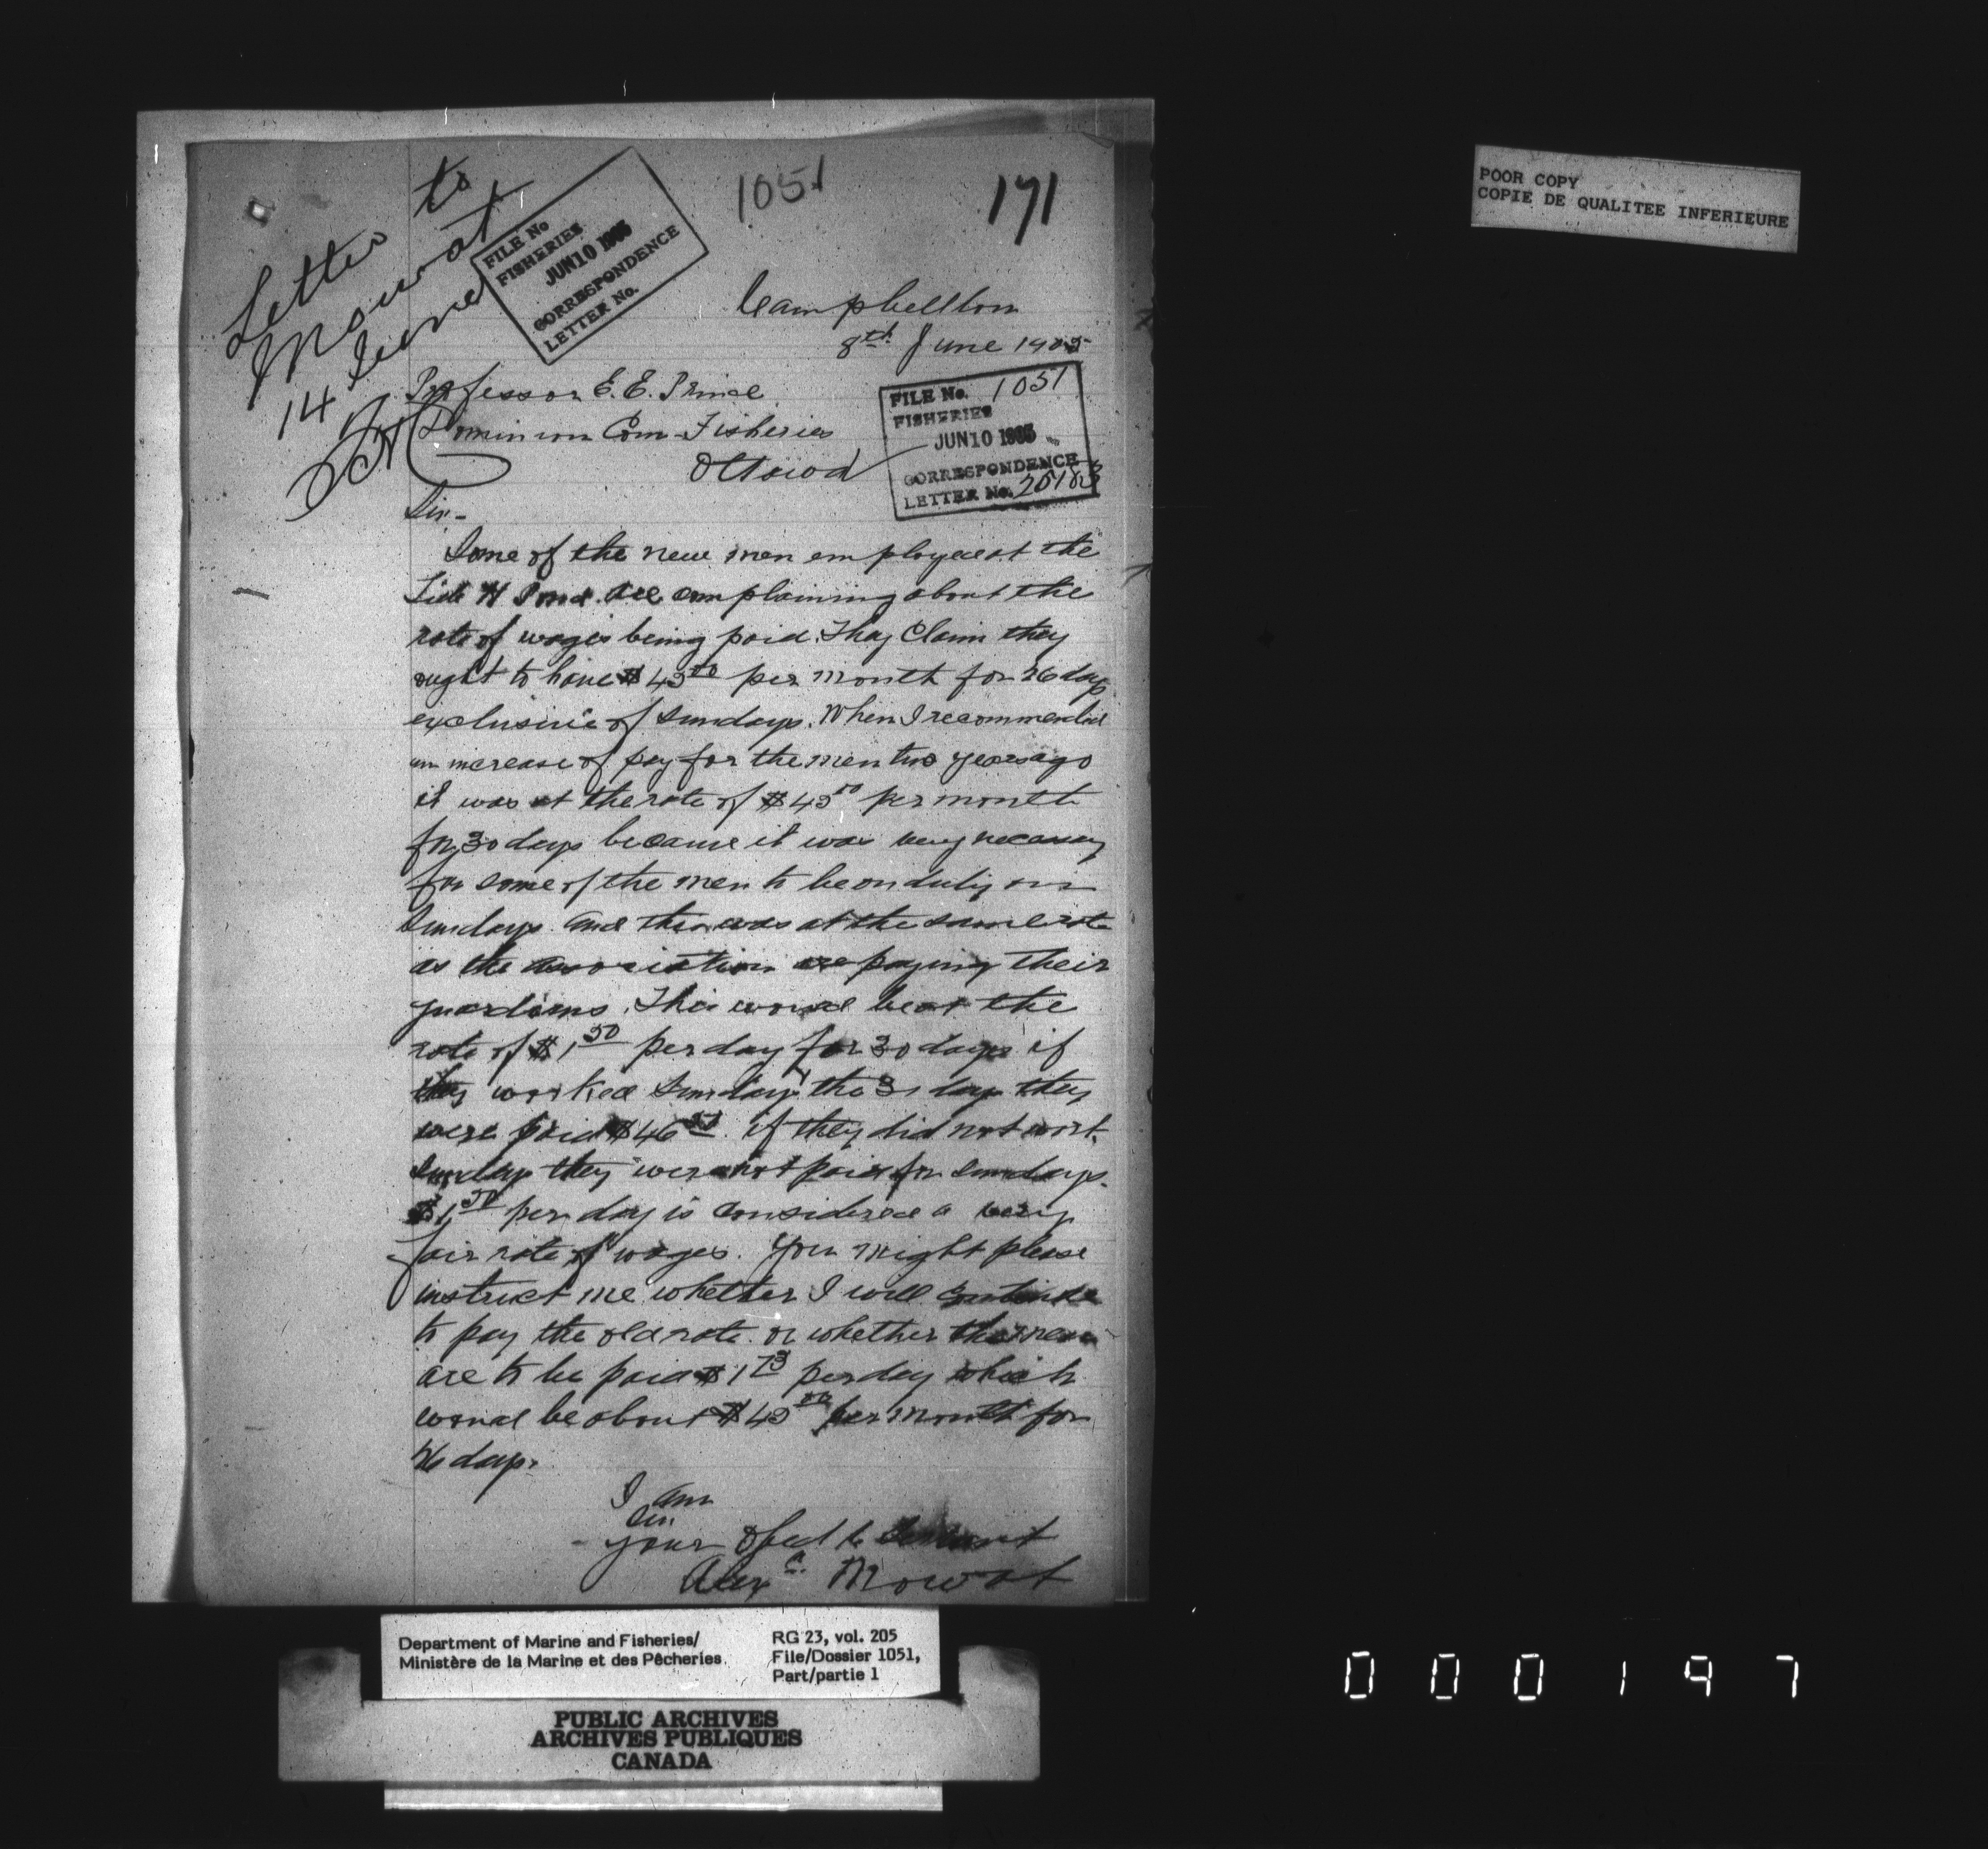 1051
171
Letter to
Mowat
14 June
FILE No
FISHERIES
JUN 10 1905
CORRESPONDENCE
LETTER No.
Campbellton
8th June 1905
Professor E. E. Prince
Dominion Com-Fisheries
Ottawa
FILE No. 1051
FISHERIES
JUN 10 1905
CORRESPONDENCE
LETTER No. 25183
Sir-
Some of the new men employed at the
Tide H Pond are complaining about the
rate of wages being paid. They Claim they
ought to have $4500 per month for 26 days
exclusive of Sundays. When I recommended
an increase of pay for the men two years ago
it was at the rate of $4500 per month
for 30 days because it was very necessary
for some of the men to be on duty on
Sundays and this was at the same rate
as the association are paying their
guardians. This would be at the
rate of $150 per day for 30 days if
they worked Sunday the 31 day they
were paid $4650. if they did not work
Sunday they were not paid for Sundays.
$150 per day is considered a very
fair rate of wages. You might please
instruct me whether I will continue
to pay the old rate. or whether the men
are to be paid $173 per day which
would be about $4500 per month for
26 days.
I am
Sir.
your Obed t Servant
Alexr Mowat
POOR COPY
COPIE DE QUALITEE INFERIEURE
Department of Marine and Fisheries/
Ministère de la Marine et des Pêcheries
RG 23, vol. 205
File/Dossier 1051,
Part/partie 1
PUBLIC ARCHIVES
ARCHIVES PUBLIQUES
CANADA
000197